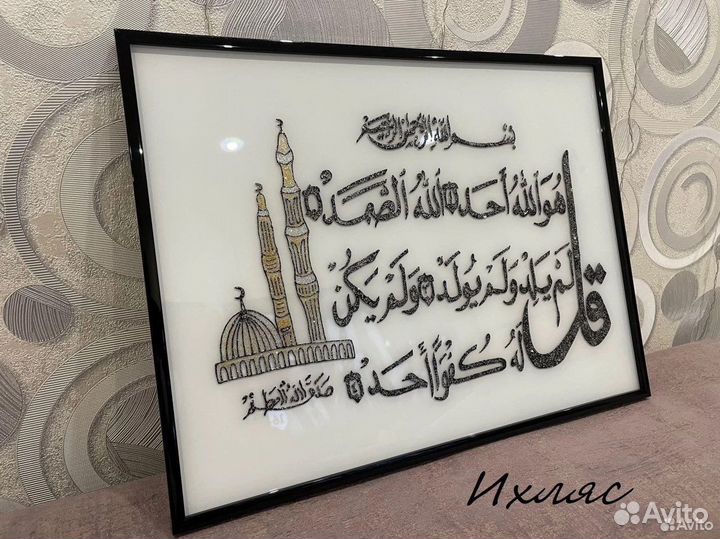 بسم الله الرحمن الرحيم
قل هُوَ اللهُ أَحَدٌ اللهُ الصَّمَدُ
لَمْ يَلِدْ وَلَمْ يُولَدْ وَلَمْ يَكُنْ
لَهُ كُفُوًا أَحَدٌ
صدق الله العظيم
Ихляс
Avito
Avito